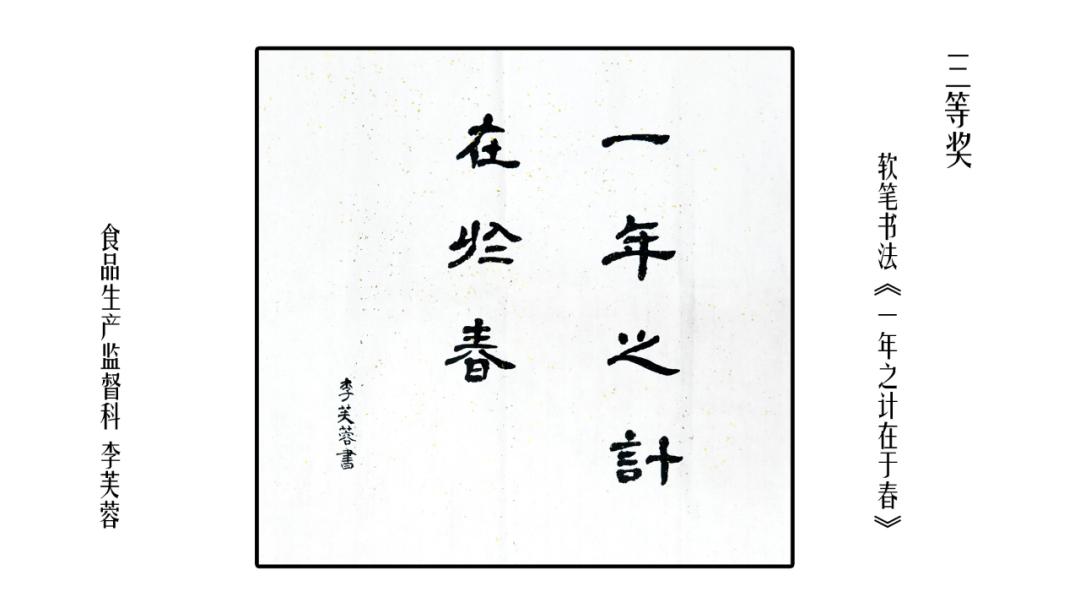 三等奖
软笔书法《一年之计在于春》
一年之計
在於春
李芙蓉書
食品生产监督科 李芙蓉